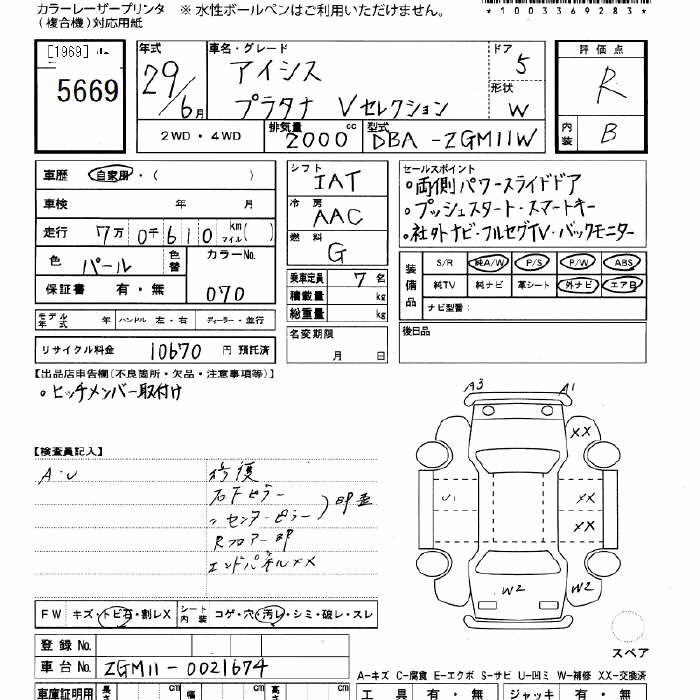 カラーレーザープリンタ ※ 水性ボールペンはご利用いただけません。
(複合機)対応用紙
*1003369283*
[1969]
5669
年式 29/6月
車名・グレード アイシス
プラタナ Vセレクション
ドア 5
形状 W
2WD・4WD
排気量 2000 cc
型式 DBA-ZGM11W
評価点 R
内装 B
車歴 自家用・( )
車検 年 月
走行 7万0千610 km マイル( )
色 パール 色替
カラーNo. 070
保証書 有・無
モデル年式 年 ハンドル 左・右 ディーラー・並行
リサイクル料金 10670 円 預託済
シフト IAT
冷房 AAC
燃料 G
乗車定員 7 名
積載量 kg
総重量 kg
名変期限
月 日
セールスポイント
○両側パワースライドドア
○プッシュスタート・スマートキー
○社外ナビ・フルセグTV・バックモニター
装備品
S/R 純A/W P/S P/W ABS
純TV 純ナビ 革シート 外ナビ エアB
ナビ型番:
後日品
【出品店申告欄(不良箇所・欠品・注意事項等)】
○ヒッチメンバー取付け
【検査員記入】
A・U
修復
右Fピラー
〃センターピラー
印歪
Rフロアー印
エンドパネルXX
A3 A1
XX
U1 XX
XX
W2 W2
スペア
FW キズ・トビ石・割レX
シート内装 コゲ・穴・汚レ・シミ・破レ・スレ
登録No.
車台No. ZGM11-0021674
A-キズ C-腐食 E-エクボ S-サビ U-凹ミ W-補修 XX-交換済
車庫証明用 長さ cm 幅 cm 高さ cm
工具 有・無 ジャッキ 有・無